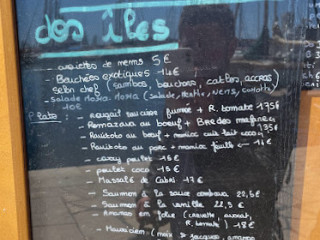 des îles
- assiettes de nems 5€
- Bouchées exotiques 14€
selon chef (sambos, bouchons, catles, accras)
- Salade (salade, Nems, carotte)
10€
Plats : - rougail saucisse fumée + R. tomate 17,5€
- Romazava au boeuf + Brèdes mafanes
17,5€
- Ravitoto au boeuf + manioc cuit lait coco
- Ravitoto au porc + manioc feuille - 16€
- caray poulet - 15€
- poulet coco - 15€
- Massalé de Cabri 17€
- Saumon à la sauce combava 22,5€
- Saumon à la vanille 22,5€
- Ananas en folie (crevette, avocat,
R. tomate) - 18€
- Mauricien (noix St jacques, ananas